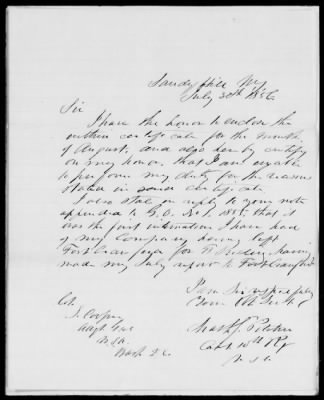 Sandy Hill N.Y.
July 30th 1856
Sir
I have the honor to enclose the
within certificate for the month
of August, and also hereby certify
on my honor, that I am unable
to perform my duty for the reasons
stated in same certificate.
I also state in reply to your note
appended to G.O. No 1. 1855, that it
was the first intimation I have had
of my Company having left
Fort Crawford for Ft Ridgely, having
made my July report to Fort Crawford
I am Sir respectfully
Your Obt Servt
Col.
S. Cooper
Adjt Genl
U.S.A.
Capt 10th Rgt
U.S.A.